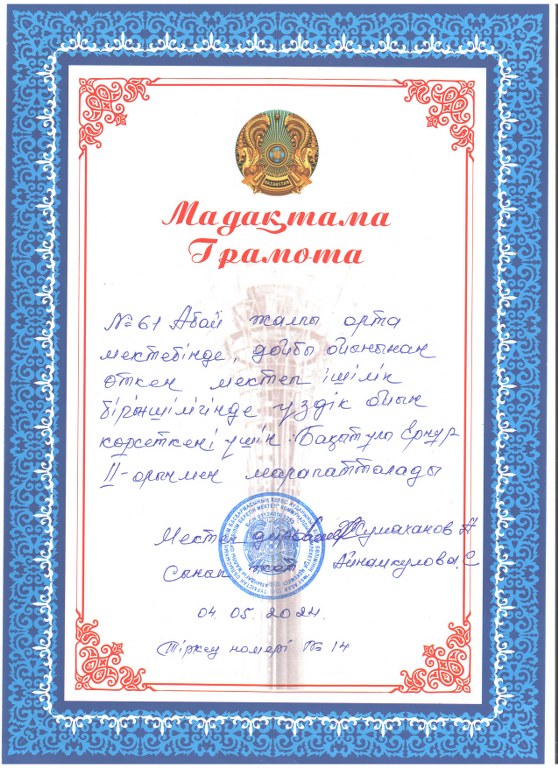 ҚАЗАҚСТАН
Мадақтама
Грамота
№61 Абай жалпы орта
мектебінде, дойбы ойынынан
өткен мектеп ішілік
біріншілігінде үздік ойын
көрсеткені үшін Бақытұлы Ернұр
II-орынмен марапатталады
Мектеп директоры Жумаханов А
Сынып жет Айнакулова С
04.05.2024.
Тіркеу номері № 14